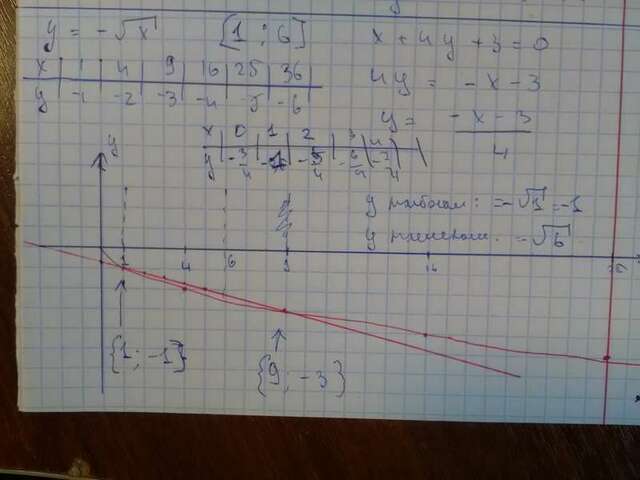 y = -√x [1 ; 6] x + 4y + 3 = 0
x | 1 | 4 | 9 | 16 | 25 | 36 | 4y = -x - 3
y | -1 | -2 | -3 | -4 | -5 | -6 y = (-x - 3)/4
x | 0 | 1 | 2 | 3 | 4
y | -3/4 | -1 | -5/4 | -6/4 | -7/4
y
y наибольш: = -√1 = -1
y наименьш. -√6
1 4 6 9 16
{1 ; -1}
{9 ; -3}